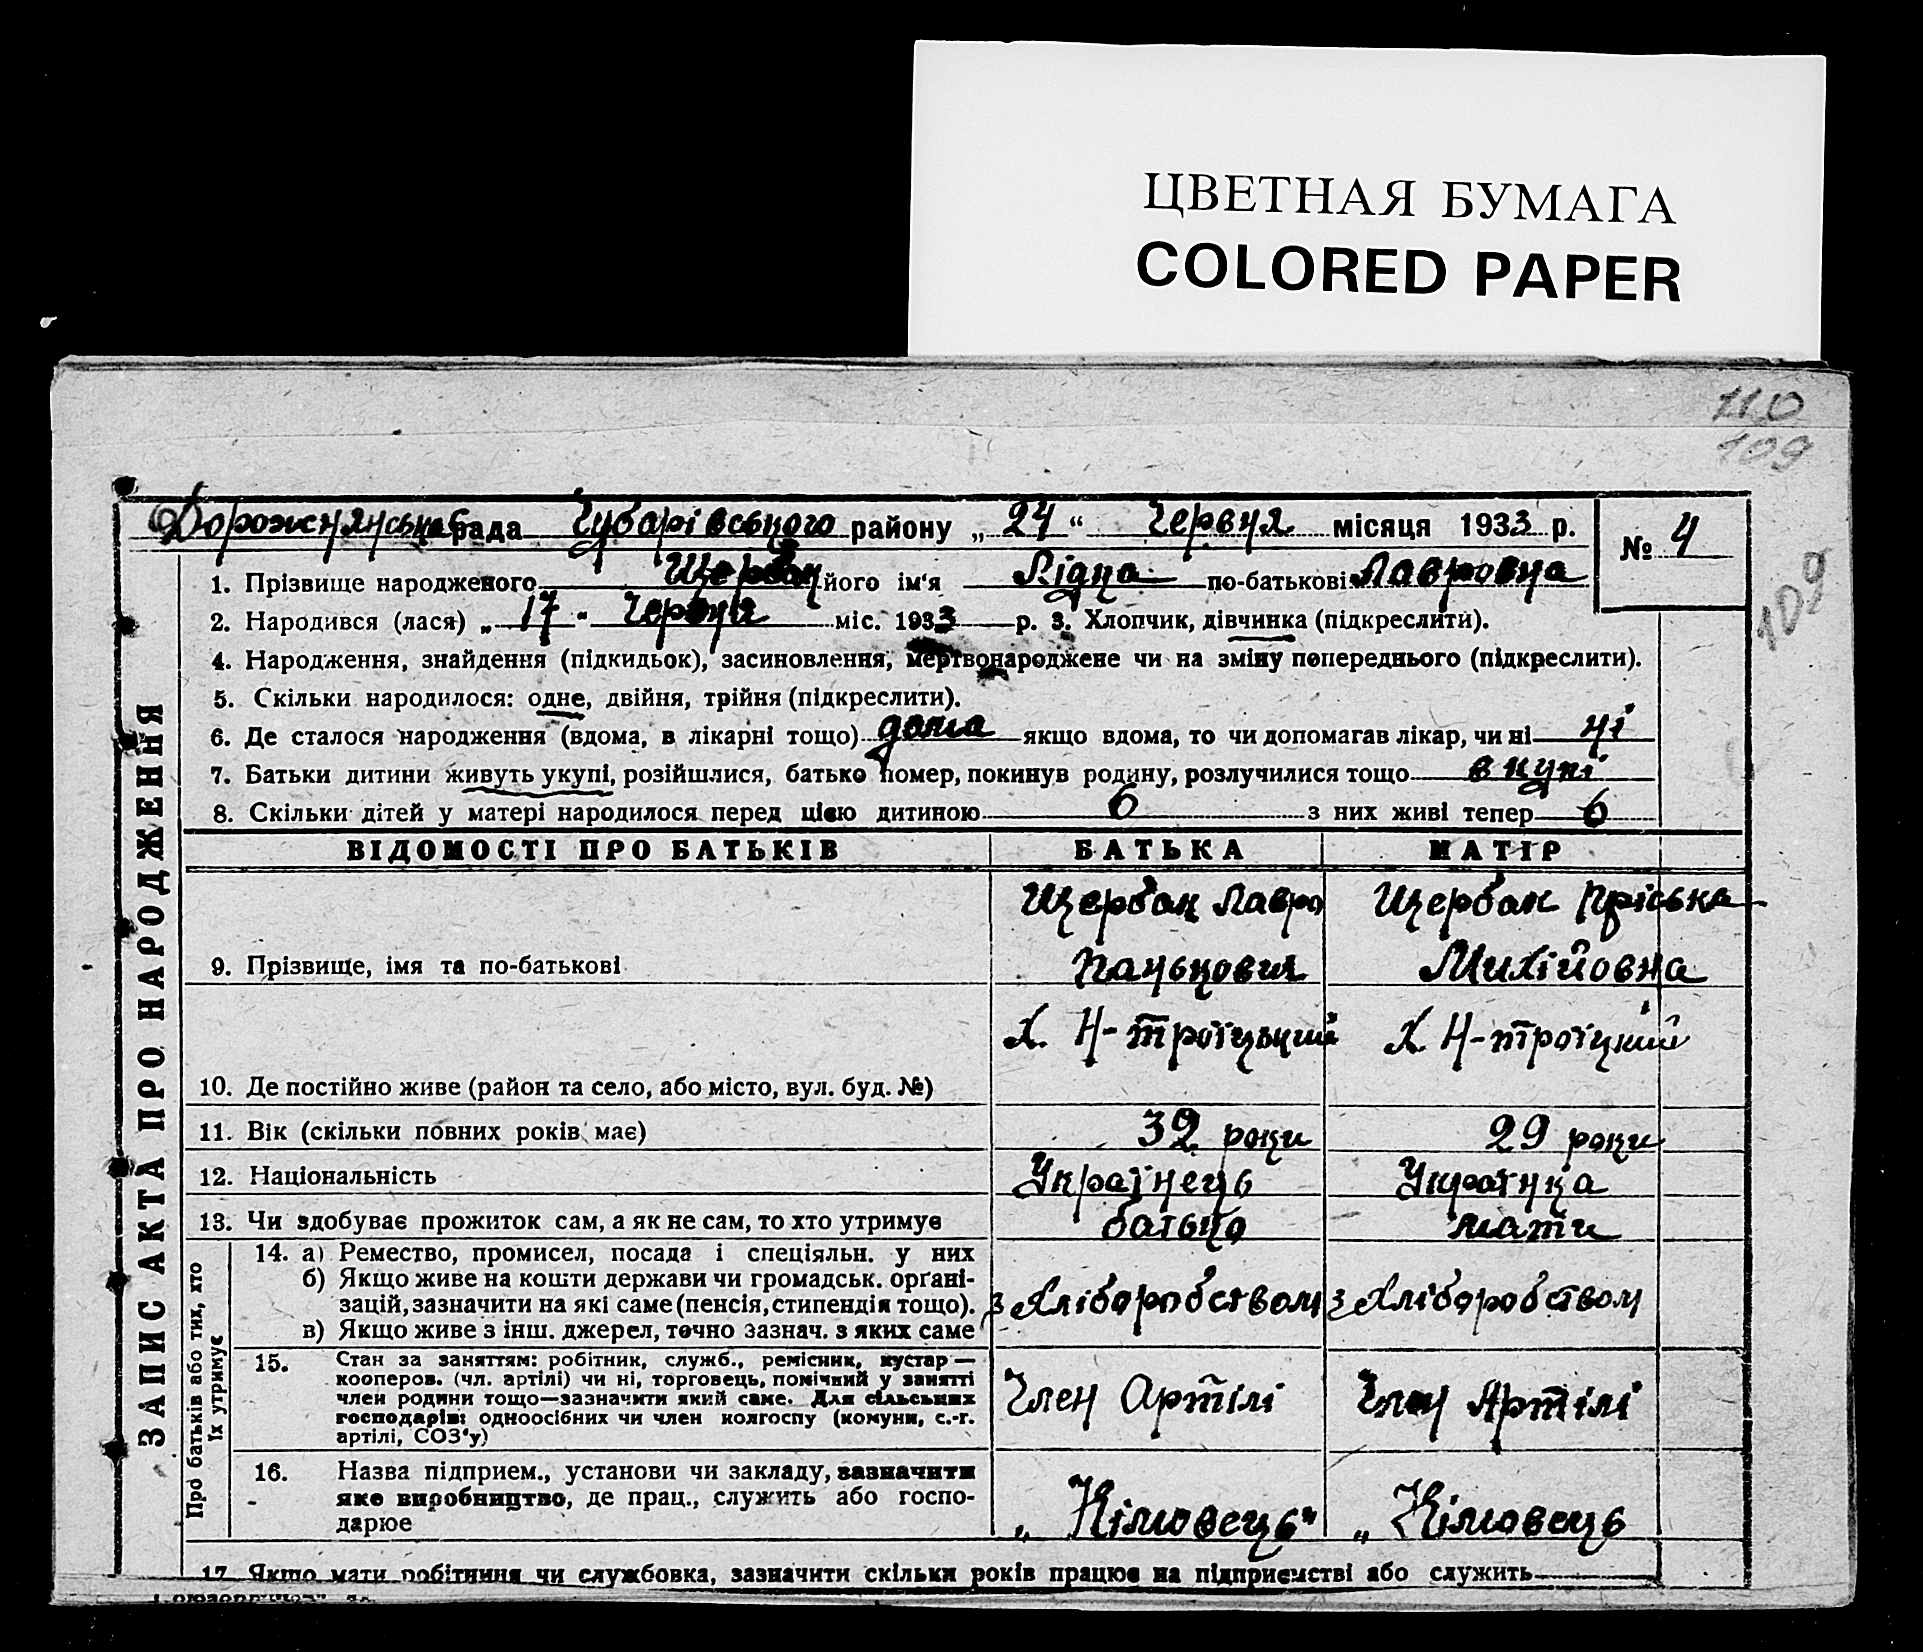 ЦВЕТНАЯ БУМАГА
COLORED PAPER
110
109
109
Дорожнянська рада Чубарівського району „24“ Червня місяця 1933 р.
№ 4
ЗАПИС АКТА ПРО НАРОДЖЕННЯ
1. Прізвище народженого Щербак його ім'я Лідна по-батькові Лавровна
2. Народився (лася) „17“ Червня міс. 1933 р. 3. Хлопчик, дівчинка (підкреслити).
4. Народження, знайдення (підкидьок), засиновлення, мертвонароджене чи на зміну попереднього (підкреслити).
5. Скільки народилося: одне, двійня, трійня (підкреслити).
6. Де сталося народження (вдома, в лікарні тощо) дома якщо вдома, то чи допомагав лікар, чи ні ні
7. Батьки дитини живуть укупі, розійшлися, батько помер, покинув родину, розлучилися тощо вкупі
8. Скільки дітей у матері народилося перед цією дитиною 6 з них живі тепер 6
ВІДОМОСТІ ПРО БАТЬКІВ БАТЬКА МАТІР
Щербак Лавро Щербак Пріська
9. Прізвище, імя та по-батькові Паньковия Михійовна
Х. Н-троїцький Х. Н-троїцкий
10. Де постійно живе (район та село, або місто, вул. буд. №)
11. Вік (скільки повних років має) 32 роки 29 роки
12. Національність Українець Українка
13. Чи здобуває прожиток сам, а як не сам, то хто утримує батько мати
Про батьків або тих, хто
їх утримує
14. а) Ремество, промисел, посада і спеціяльн. у них
б) Якщо живе на кошти держави чи громадськ. орґані-
зацій, зазначити на які саме (пенсія, стипендія тощо). з хліборобством з хліборобством
в) Якщо живе з інш. джерел, точно зазнач. з яких саме
15. Стан за заняттям: робітник, служб., ремісник, кустар—
кооперов. (чл. артілі) чи ні, торговець, помічний у занятті
член родини тощо—зазначити який саме. Для сільських Член Артілі Член Артілі
господарів: одноосібних чи член колгоспу (комуни, с.-г.
артілі, СОЗ'у)
16. Назва підприєм., установи чи закладу, зазначити
яке виробництво, де прац., служить або госпо- „Кімовець“ „Кімовець
дарює
17. Якщо мати робітниця чи службовка, зазначити скільки років працює на підприємстві або служить